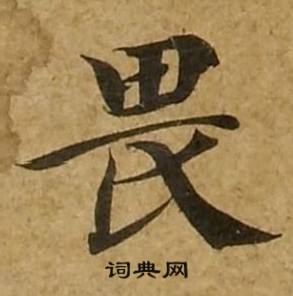 畏
词典网